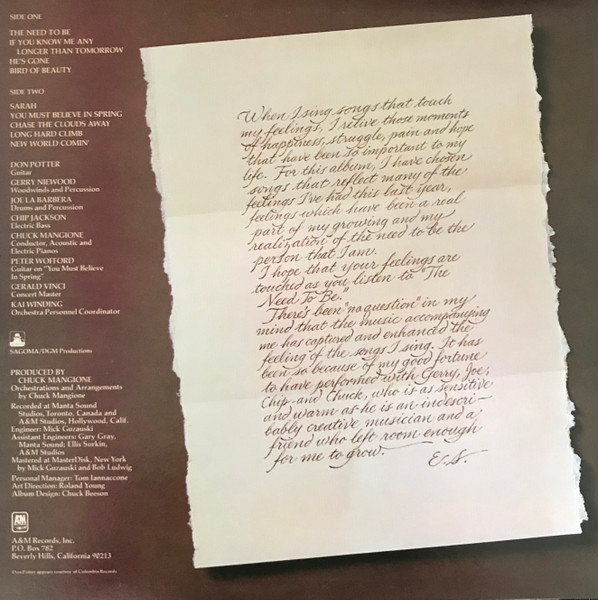 SIDE ONE
THE NEED TO BE
IF YOU KNOW ME ANY
LONGER THAN TOMORROW
HE'S GONE
BIRD OF BEAUTY
SIDE TWO
SARAH
YOU MUST BELIEVE IN SPRING
CHASE THE CLOUDS AWAY
LONG HARD CLIMB
NEW WORLD COMIN'
DON POTTER
Guitar
GERRY NIEWOOD
Woodwinds and Percussion
JOE LA BARBERA
Drums and Percussion
CHIP JACKSON
Electric Bass
CHUCK MANGIONE
Conductor, Acoustic and
Electric Pianos
PETER WOFFORD
Guitar on "You Must Believe
In Spring"
GERALD VINCI
Concert Master
KAI WINDING
Orchestra Personnel Coordinator
SAGOMA/DGM Productions
PRODUCED BY
CHUCK MANGIONE
Orchestrations and Arrangements
by Chuck Mangione
Recorded at Manta Sound
Studios, Toronto, Canada and
A&M Studios, Hollywood, Calif.
Engineer: Mick Guzauski
Assistant Engineers: Gary Gray,
Manta Sound; Ellis Sorkin,
A&M Studios
Mastered at MasterDisk, New York
by Mick Guzauski and Bob Ludwig
Personal Manager: Tom Iannaccone
Art Direction: Roland Young
Album Design: Chuck Beeson
A&M
A&M Records, Inc.
P.O. Box 782
Beverly Hills, California 90213
Don Potter appears courtesy of Columbia Records
When I sing songs that touch
my feelings, I relive those moments
of happiness, struggle, pain and hope
that have been so important to my
life. For this album, I have chosen
songs that reflect many of the
feelings I've had this last year,
feelings which have been a real
part of my growing and my
realization of the need to be the
person that I am.
I hope that your feelings are
touched as you listen to "The
Need To Be."
There's been "no question" in my
mind that the music accompanying
me has captured and enhanced the
feeling of the songs I sing. It has
been so because of my good fortune
to have performed with Gerry, Joe,
Chip and Chuck, who is as sensitive
and warm as he is an indescri-
bably creative musician and a
friend who left room enough
for me to grow.
E.S.